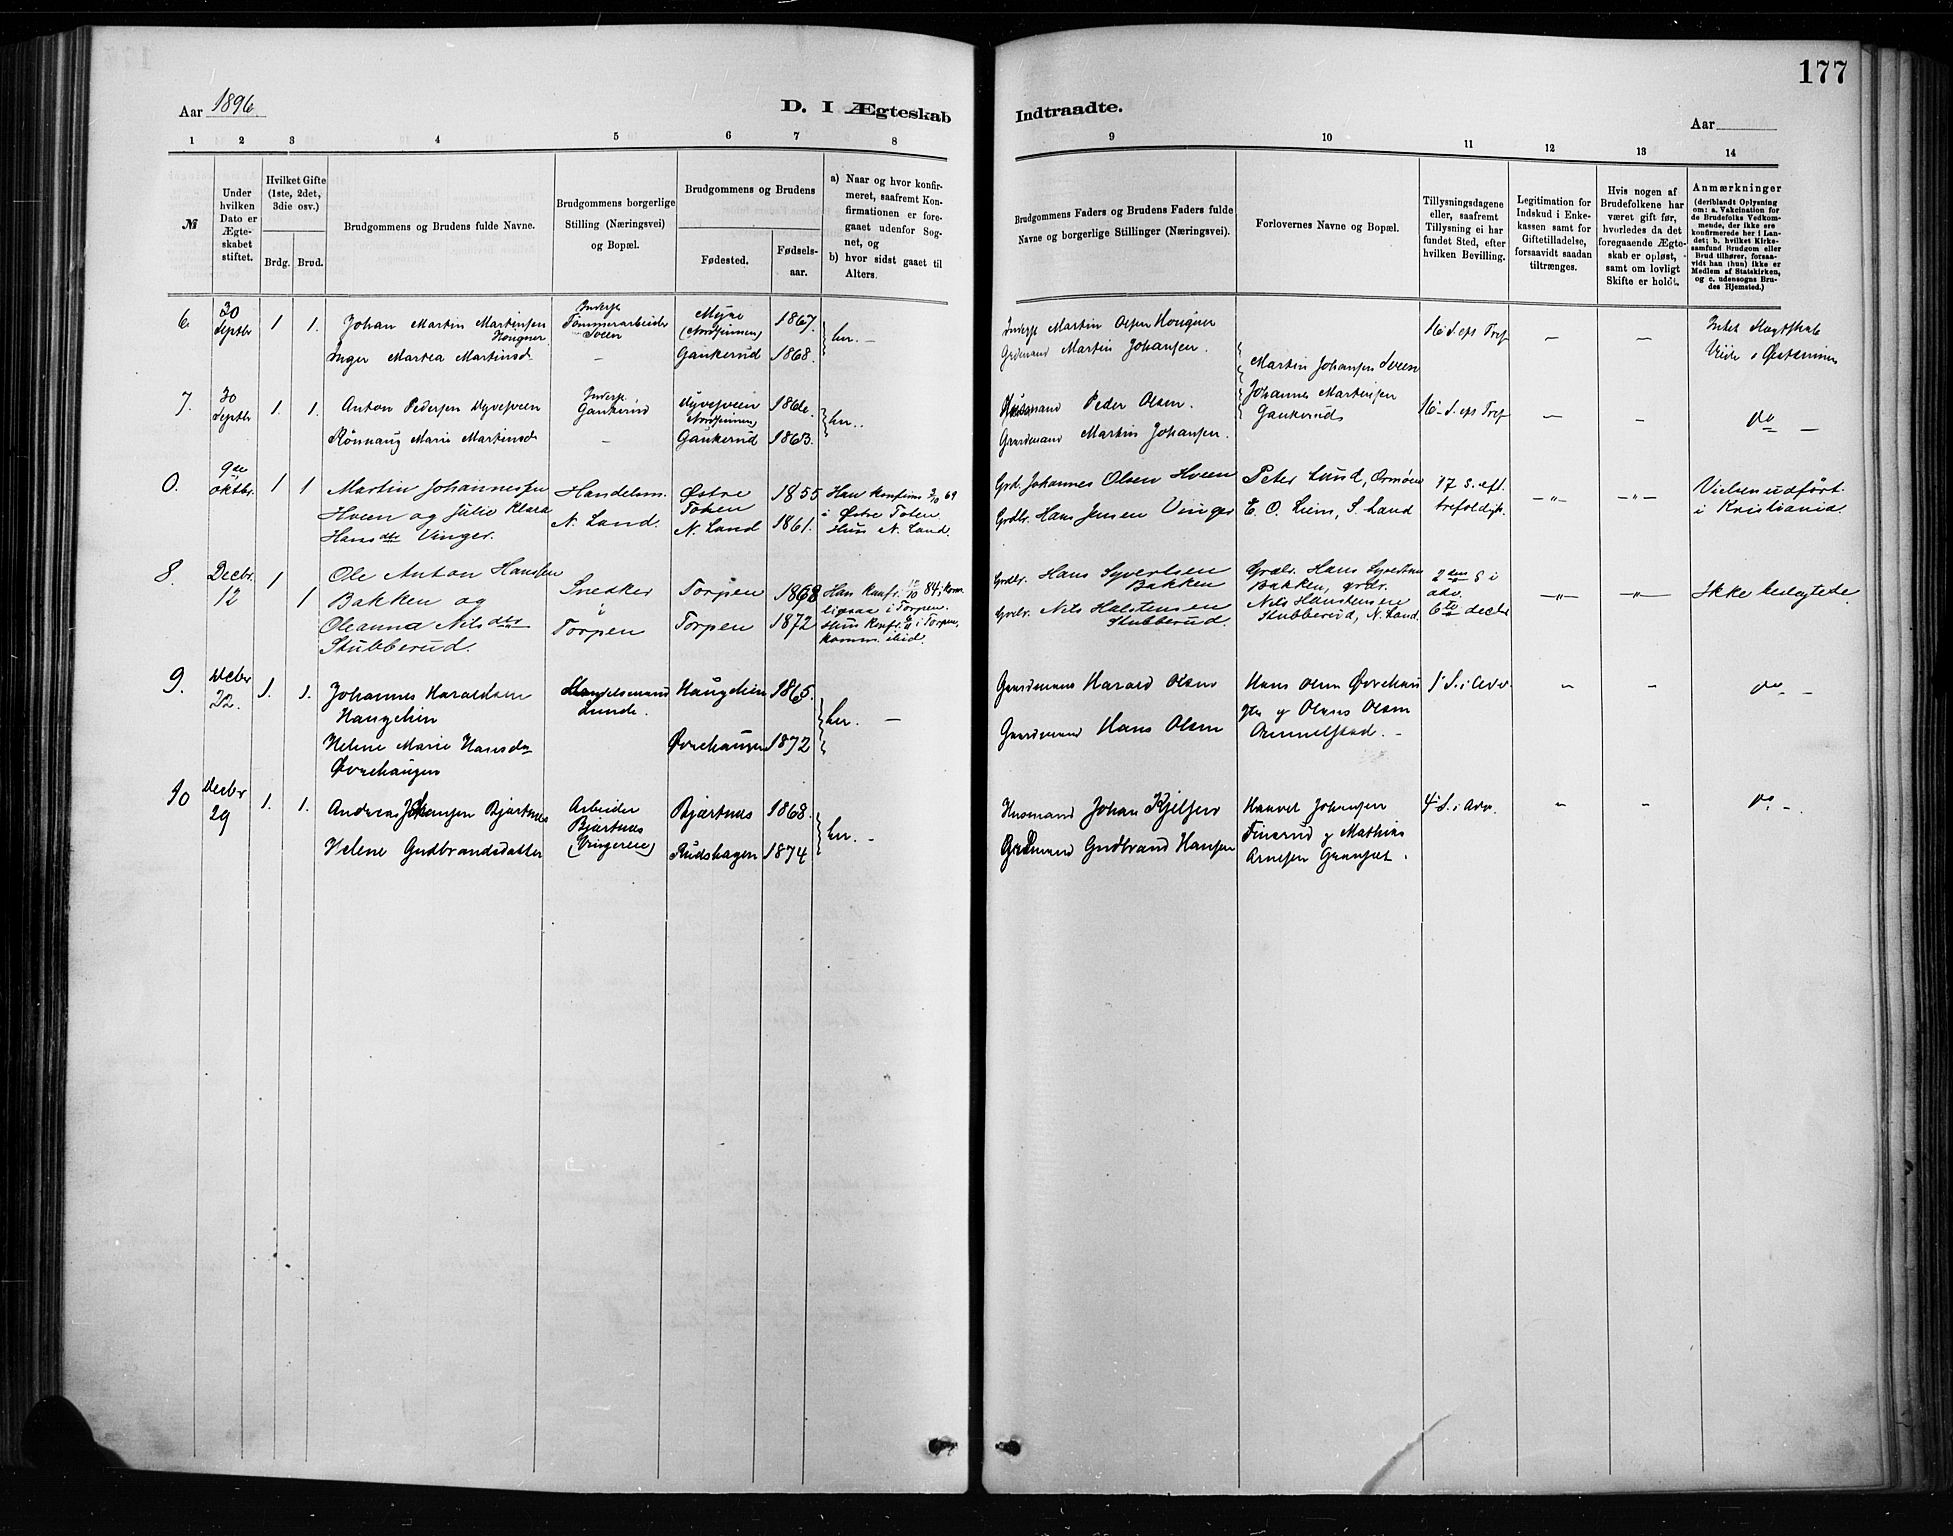 177
Aar 1896.
D. I Ægteskab Indtraadte.
Aar
1 2 3 4 5 6 7 8 9 10 11 12 13 14
№
Under hvilken Dato er Ægteskabet stiftet.
Hvilket Gifte (1ste, 2det, 3die osv.)
Brdg. Brud.
Brudgommens og Brudens fulde Navne.
Brudgommens borgerlige Stilling (Næringsvei) og Bopæl.
Brudgommens og Brudens
Fødested.
Fødselsaar.
a) Naar og hvor konfirmeret, saafremt Konfirmationen er foregaaet udenfor Sognet, og
b) hvor sidst gaaet til Alters.
Brudgommens Faders og Brudens Faders fulde Navne og borgerlige Stillinger (Næringsvei).
Forlovernes Navne og Bopæl.
Tillysningsdagene eller, saafremt Tillysning ei har fundet Sted, efter hvilken Bevilling.
Legitimation for Indskud i Enkekassen samt for Giftetilladelse, forsaavidt saadan tiltrænges.
Hvis nogen af Brudefolkene har været gift før, hvorledes da det foregaaende Ægteskab er opløst, samt om lovligt Skifte er holdt.
Anmærkninger (deriblandt Oplysning om: a. Vakcination for de Brudefolks Vedkommende, der ikke ere konfirmerede her i Landet; b. hvilket Kirkesamfund Brudgom eller Brud tilhører, forsaavidt han (hun) ikke er Medlem af Statskirken, og c. udensogns Brudes Hjemsted.)
6. 30 Septbr 1 1. Johan Martin Martinsen
Inger Martea Martinsd.
Indersp. Tømmerarbeider Sveen
Myre (Nordsinnen) 1867.
Gaukerud 1868.
her. —
Indersp Martin Olsen
Grdmand Martin Johansen.
Martin Johansen Sveen
Johannes Martinsen Gaukerud
16 S. eps Tref
Intet Slægtskab
7. 30 Septbr 1. 1. Anton Pedersen Dyvesveen
Rönnaug Marie Martinsd.
Indersp. Gaukerud
Dyvesveen (Nordsinnen)
Gaukerud 1863.
her..
Husmand Peder Olsen.
Gaardmand Martin Johansen.
16 S. eps Tref
do —
0. 9de oktbr. 1 1 Martin Johannessen
Hveen og Julie Klara
Hansdtr Vinger.
Handelsm.
N. Land.
Østre Toten 1855
N. Land 1861.
Han konfirm. 69
i Østre Toten
Hun N. Land.
Grd. Johannes Olsen Hveen
Grdbr. Hans Jensen Vinger
Peter Lund,
E. O. Liem, S. Land
17 s. eft. trefoldigh.
—"— —"—
Vielsen udført
i Kristiania.
8. Decbr. 12 1 1 Ole Anton Hanssen
Bakken og
Oleanna Nilsdtr
Stubberud.
Snedker
Torpen
Torpen 1868
Torpen 1872
Han konf. 84
i Torpen.
Hun konf. i Torpen,
Grdbr. Hans Syvertsen Bakken
Grdbr. Nils Halstensen Stubberud.
Hans Syvertsen
Bakken, grdbr.
Nils
Stubberud, N. Land.
2den s i adv.
6te decbr
—"— —"—
Ikke beslægtede.
9. Decbr 22. 1. 1. Johannes Haraldsen
Haugelien
Helene Marie Hansdtr
Øvrehaugen
Handelsmand
Lunde.
Haugelien 1865.
Øvrehaugen 1872
her. —
Gaardmand Harald Olsen
Gaardmand Hans Olsen
Hans Olsen Øvrehaugen og Olaus Olsen
1 S. i Adv.
do —
90 Decbr 29 1. 1. Andreas Johansen Bjørtnes
Helene Gudbrandsdatter
Arbeider
Bjørtnes
Bjørtnes 1868.
Rudshagen 1874
her. —
Husmand Johan Kjelsen
Grdmand Gudbrand Hansen
Haavel Johansen
Finsrud og Mathias
Arnesen
4 S. i Adv.
do —